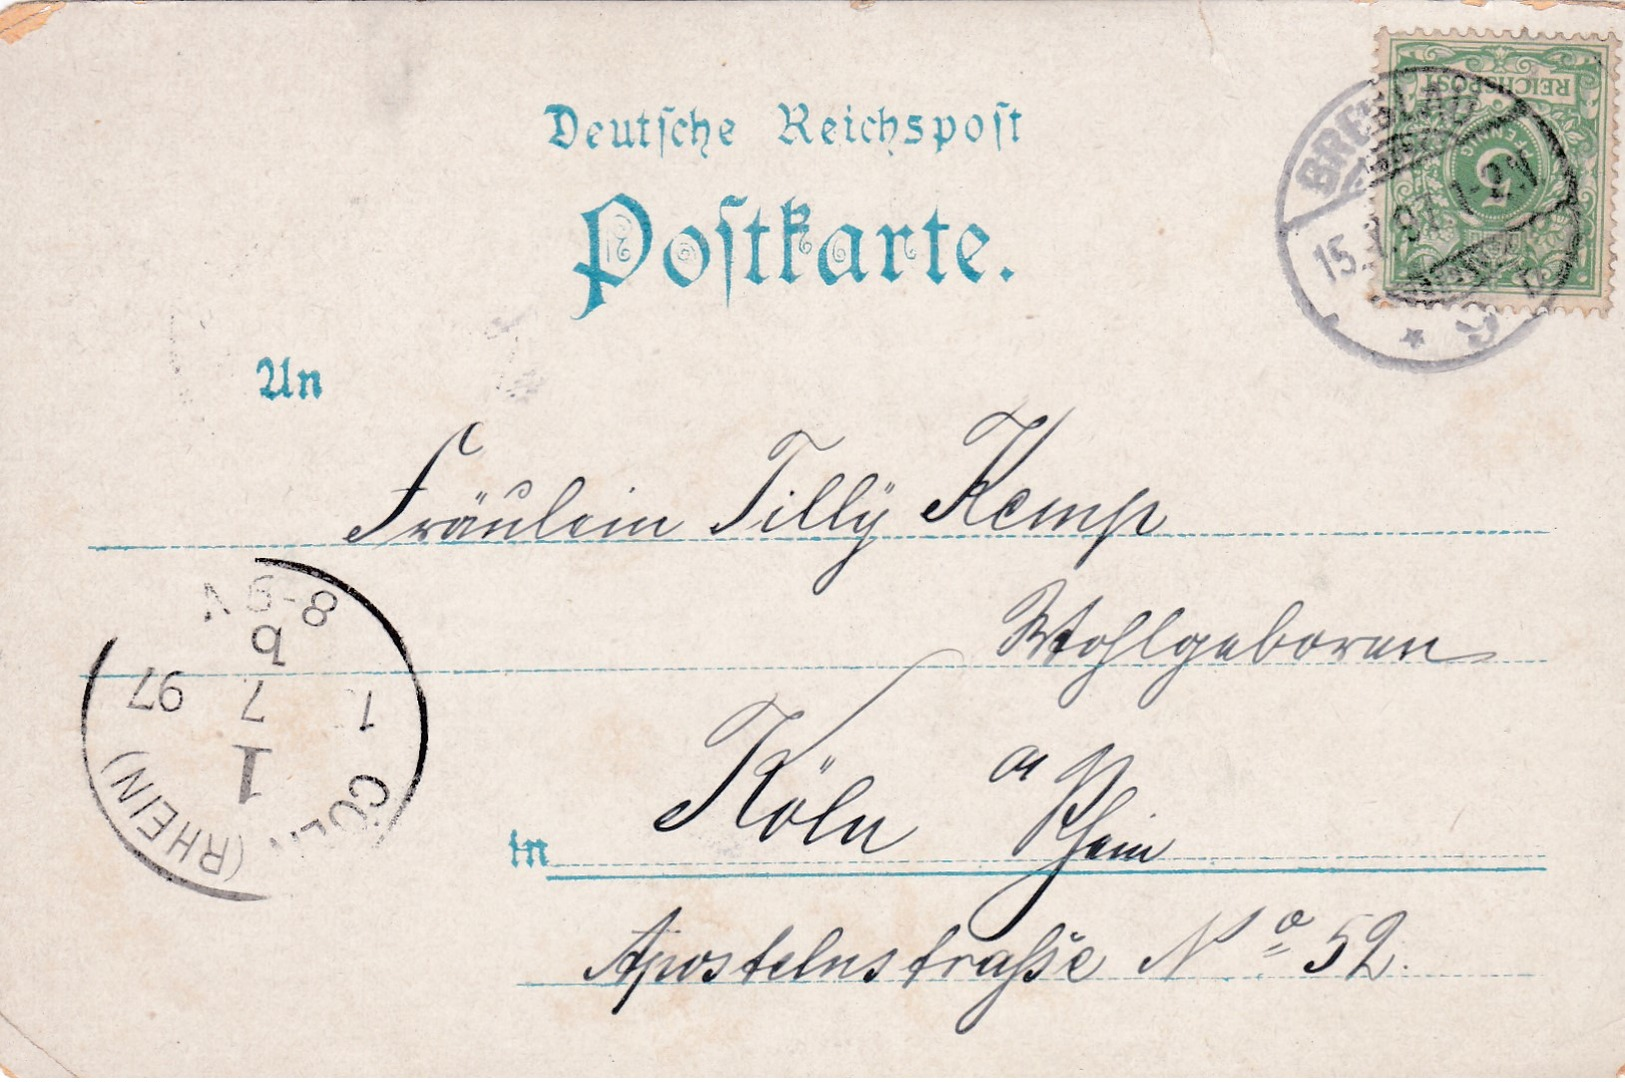 Deutsche Reichspost
Postkarte.
REICHSPOST
5
PFENNIG
BRESLAU
1-2.N.
An
Fräulein Tilly Kemp
Wohlgeboren
in Köln a Rhein
Apostelnstraße No 52.
CÖLN (RHEIN)
1
7
97
b
8-9 N